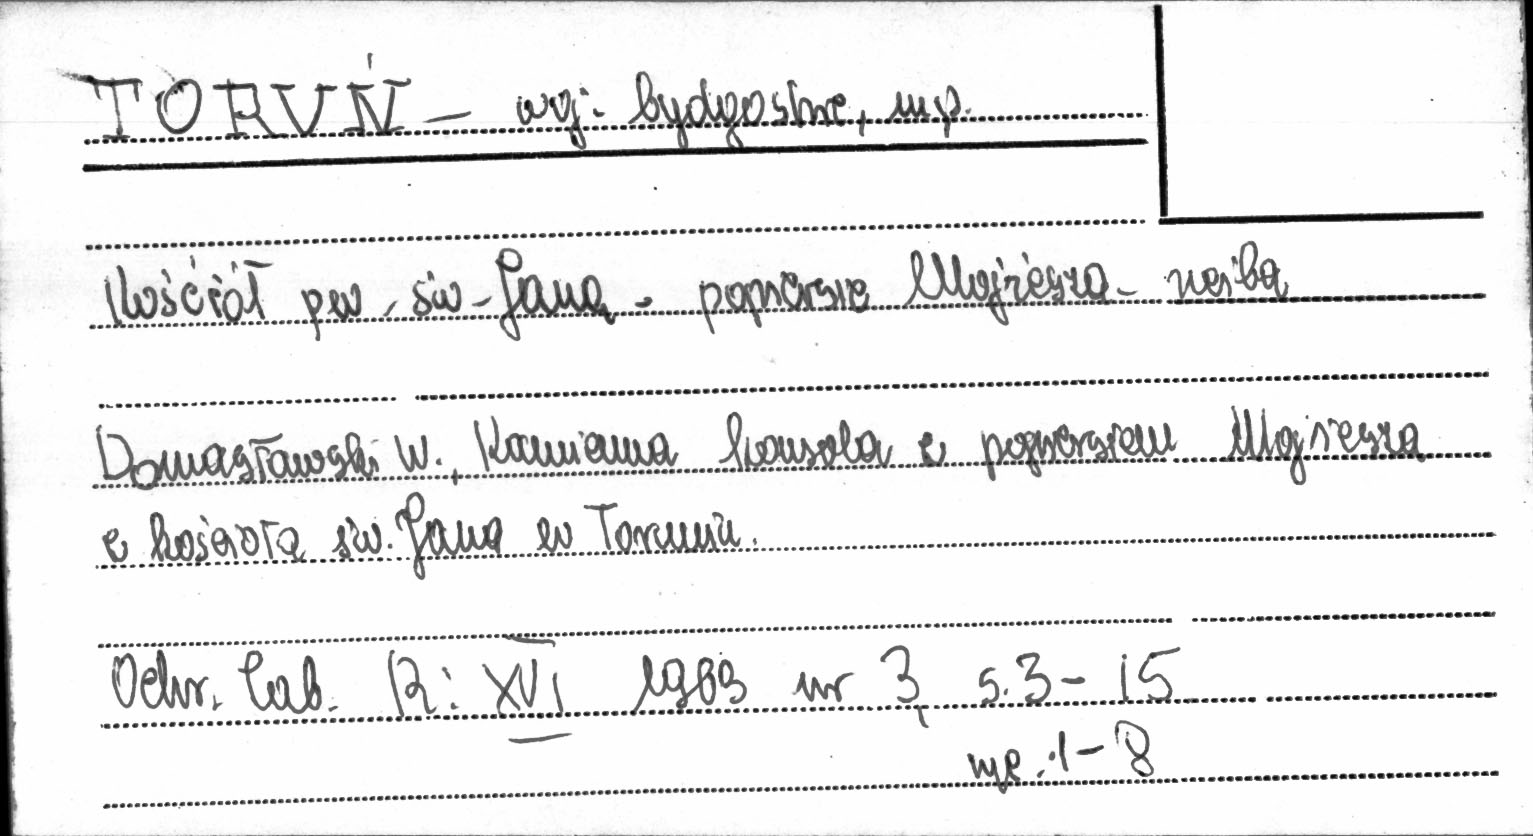 TORUŃ – woj. bydgoskie, mp.
Kościół pw. św. Jana - popiersie Mojżesza - rzeźba
Domasłowski W., Kamienna konsola z popiersiem Mojżesza
z kościoła św. Jana w Toruniu.
Ochr. Zab. R: XVI 1963 nr 3, s. 3-15
ryc. 1-8